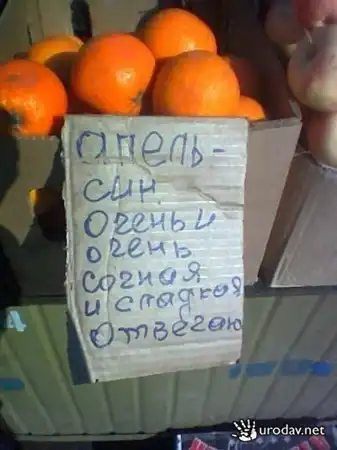 апель-
син
очень и
очень
сочная
и сладкая
отвечаю
urodav.net